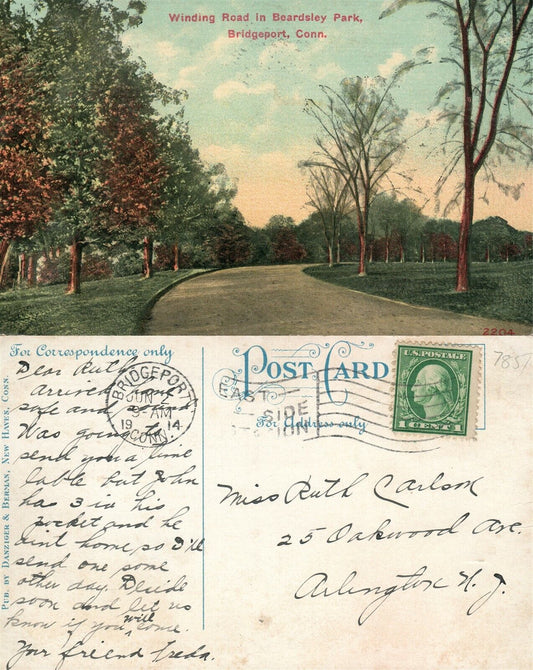 Winding Road in Beardsley Park,
Bridgeport, Conn.
2204
For Correspondence only
POST CARD
For Address only
7851
PUB. BY DANZIGER & BERMAN, NEW HAVEN, CONN.
BRIDGEPORT
JUN
9-AM
19 14
CONN.
EAST
SIDE
STATION
U.S. POSTAGE
1 CENT 1
Dear Ruth,
Arrived home
safe and
Was going to
send you a time
table but John
has 3 in his
pocket and he
aint home, so I'll
send one some
other day. Decide
soon and let us
know if you will come.
Your friend Freda.
Miss Ruth Carlson
25 Oakwood Ave.
Arlington N.J.